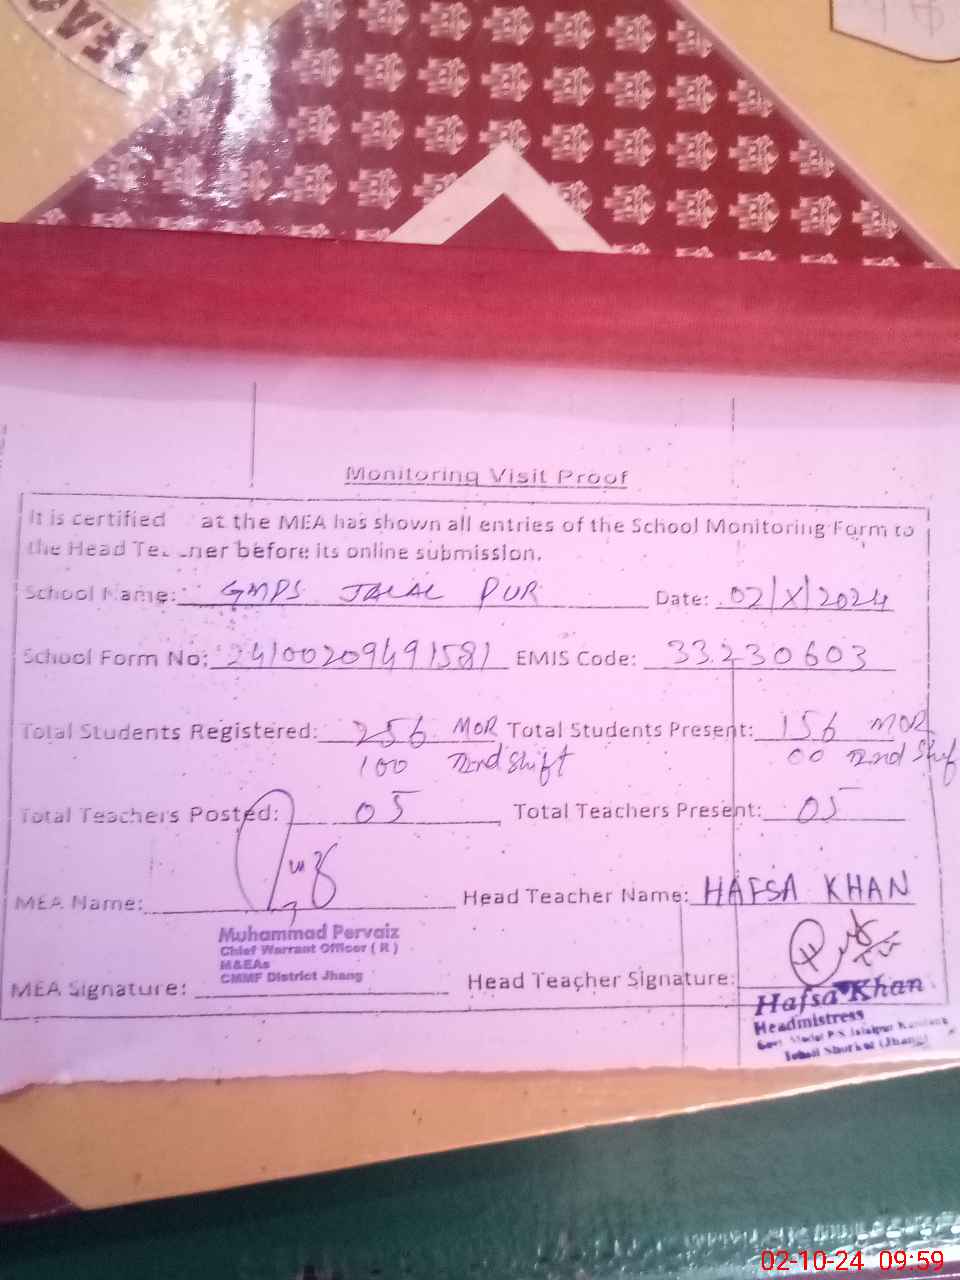 TEA
Monitoring Visit Proof
It is certified at the MEA has shown all entries of the School Monitoring Form to
the Head Te ner before its online submission.
School Name: GMPS JALAL PUR Date: 02/X/2024
School Form No: 24100209491581 EMIS Code: 33230603
Total Students Registered: 256 MOR Total Students Present: 156 MOR
100 2nd Shift 00 2nd Shif
Total Teachers Posted: 05 Total Teachers Present: 05
MEA Name: Head Teacher Name: HAFSA KHAN
Muhammad Pervaiz
Chief Warrant Officer ( R )
M&EAs
CMMF District Jhang
MEA Signature: Head Teacher Signature:
Hafsa Khan
Headmistress
Govt. Model P/S Jalalpur
Tehsil Shorkot (Jhang)
02-10-24 09:59